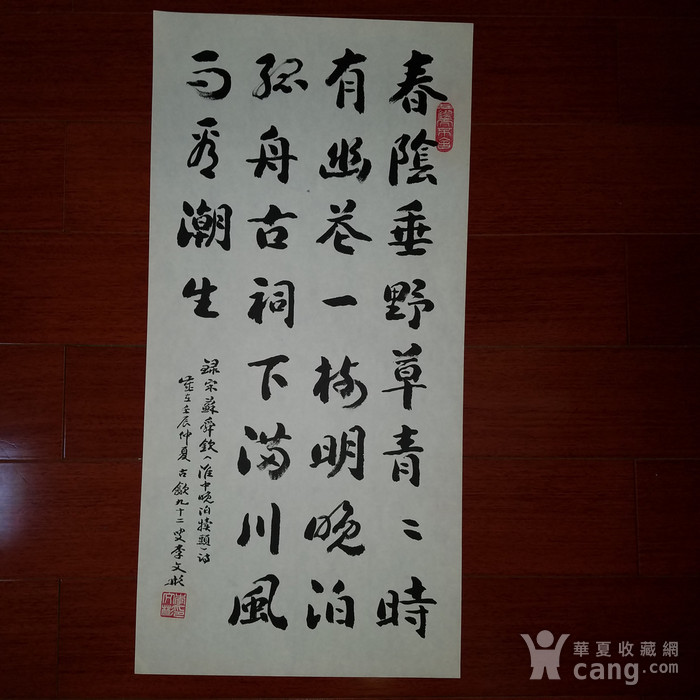 春陰垂野草青〻時
有幽花一树明晚泊
孤舟古祠下滿川風
雨看潮生
録宋蘇舜欽〈淮中晚泊犢頭〉詩
歲在壬辰仲夏古歙九十二叟李文彬
華夏收藏網
cang.com